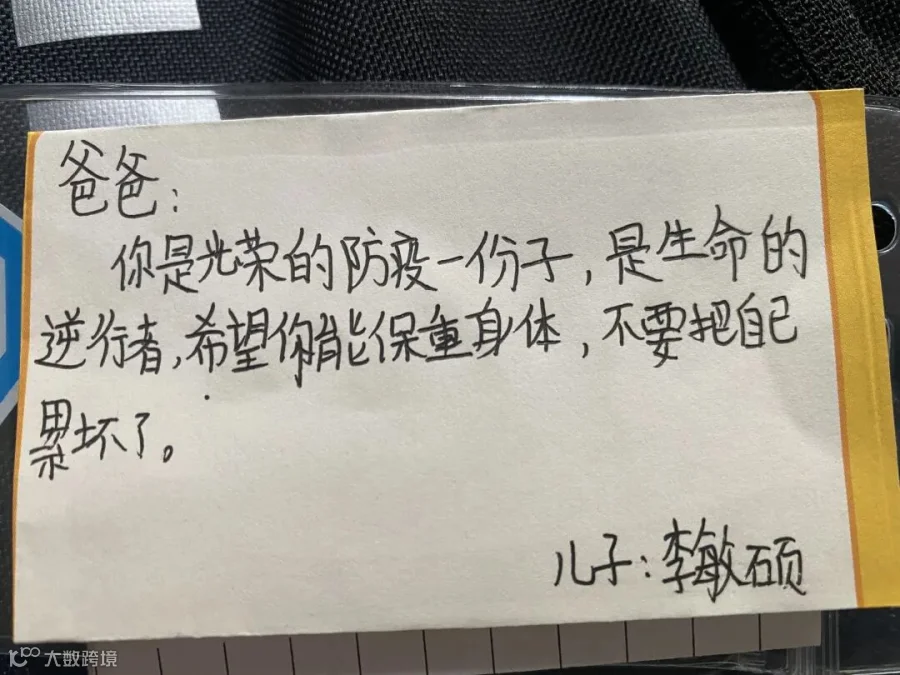 爸爸：
你是光荣的防疫一份子，是生命的
逆行者，希望你能保重身体，不要把自己
累坏了。
儿子：李敏硕
大数跨境